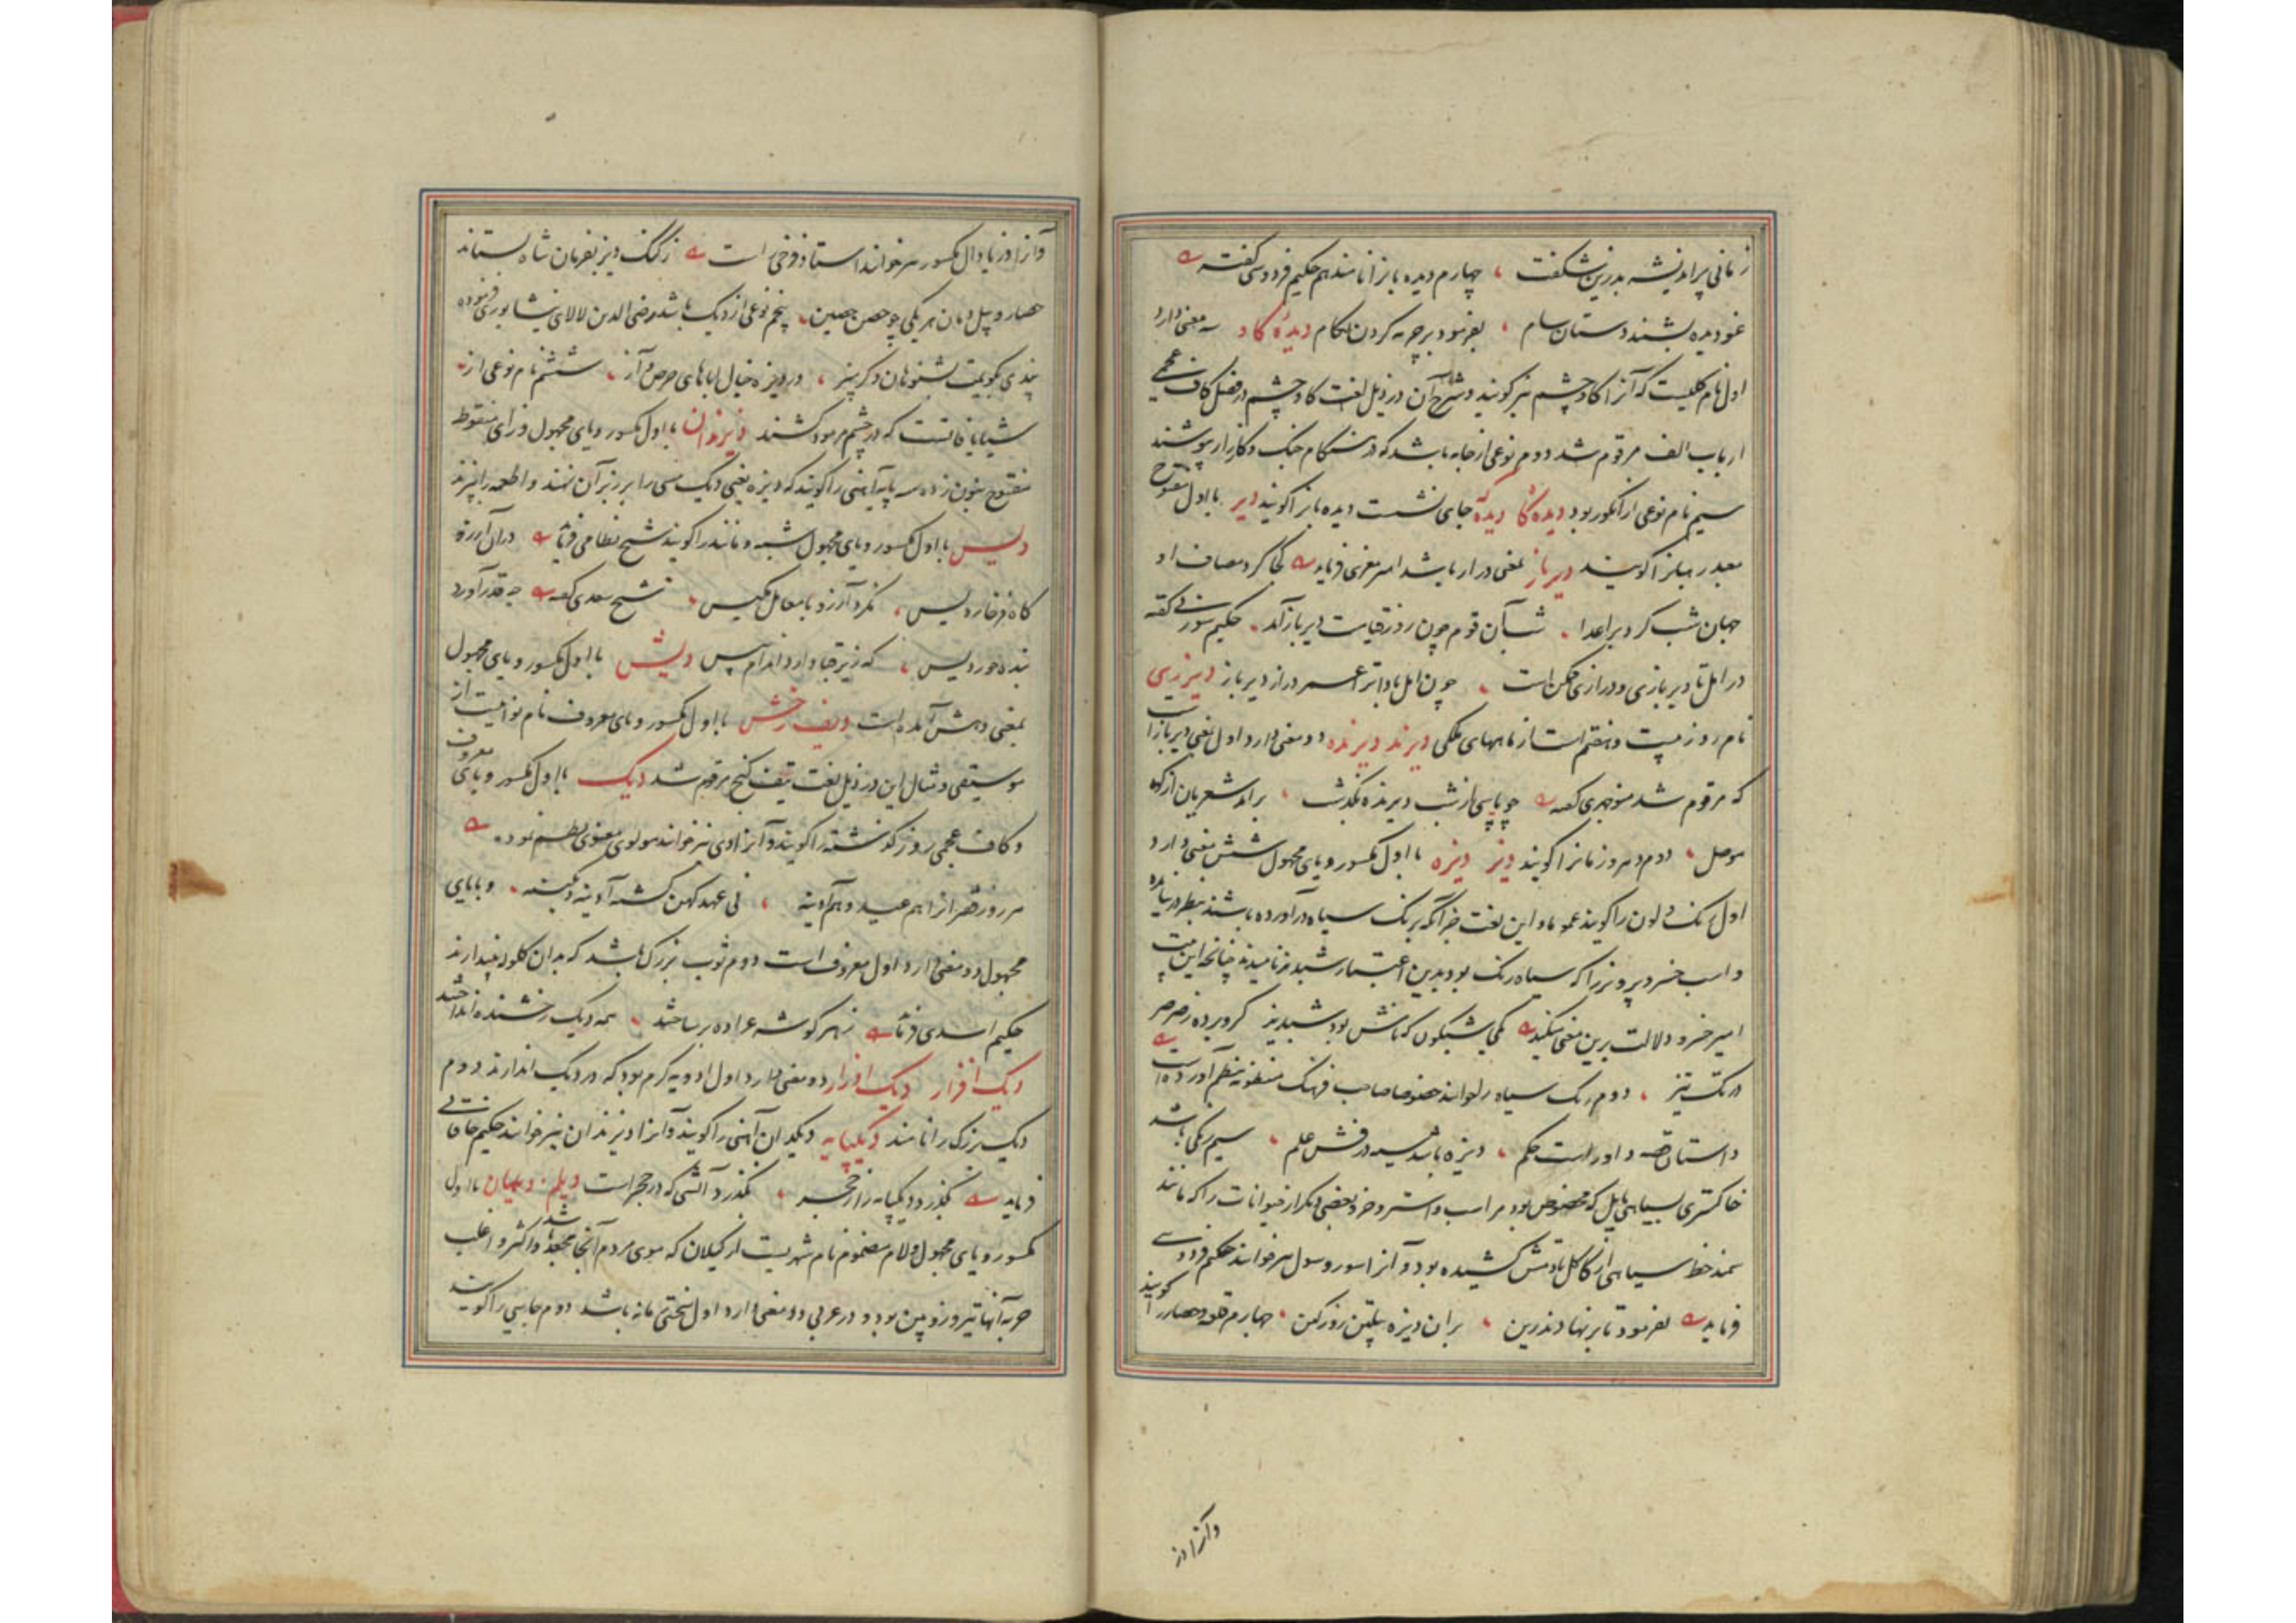 زمانی پراندیشه بد زین شکفت ، چهارم دیده بانرا نامند هم حکیم فردوسی گفته
غو دیده بشنید دستان سام ، بفرمود بر چرمه کردن لکام دیدهٔ کاو سه معنی دارد
اول نام کلیست که آنرا کاوچشم نیز کویند و شرح آن در ذیل لغت کاوچشم در فصل کاف عجمی
از باب الف مرقوم شد دوم نوعی از جامه باشد که در هنکام جنک و کارزار پوشند
سیم نام نوعی از انکور بود دیده کا دیدکه جای نشست دیده بانرا کویند دیر با اول مفتوح
معبد رهبانرا کویند دیرباز بمعنی دراز باشد امیر معزی فرماید کجا کرد مصاف او
جهان شب کرد بر اعدا ، شب آن قوم چون روز قیامت دیرباز آمد ، حکیم سوزنی گفته
در امل تا دیربازی و درازی ممکن است ، چون امل بادا ترا عمر دراز دیرباز
نام روز بیست و هفتم است از ماههای ملکی دیرند دیرنده دو معنی دارد اول بمعنی دیرباز است
که مرقوم شد منوچهری گفته چو پاسی از شب دیرنده بگذشت ، برآمد شعریان از کوه
موصل ، دوم دهر و زمانرا کویند دیز دیزه با اول مکسور و یای مجهول شش معنی دارد
اول رنک و لون را کویند عموما و این لغت جز آنکه برنک سیاه درآورده باشند بنظر در نیامده
و اسب خسرو پرویز را که سیاه رنک بود بدین اعتبار شبدیز نامیدند چنانچه این بیت
امیر خسرو دلالت برین معنی میکند یکی شبکون که نامش بود شبدیز کرو برده ز صرصر
در تک تیز ، دوم رنک سیاه را خوانند خصوصا صاحب فرهنک منظومه بنظم آورده است
داستان قصه و اور است حکم ، دیزه باشد سیه درفش علم ، سیم رنکی باشد
خاکستری بسیاهی مایل که مخصوص بود مر اسب و استر و خر و بعضی دیکر از حیوانات را که مانند
سمند خط سیاهی از کاکل تا دمش کشیده بود و آنرا سور و سول نیز خوانند حکیم فردوسی
فرماید بفرمود تا برنهادند زین ، بران دیزه پیلتن روز کین ، چهارم قلعه و حصار را کویند
وآنرا دز
وآنرا دز با دال مکسور نیز خوانند استاد فرخی است ز کنک دیز بفرمان شاه بستاند
حصار و پیل دمان هر یکی چو حصن حصین ، پنجم نوعی از دیک باشد رضی الدین لالای نیشابوری فرموده
پندی بکویمت بشنو هان و کر پیز ، در دیزه خیال اباهای حرص و آز ، ششم نام نوعی از
شیایافاتست که در چشم مرمود کشند دیزندان با اول مکسور و یای مجهول و زای منقوط
مفتوح بنون زده سه پایه آهنی را کویند که دیزه یعنی دیک مسی را بر زبر آن نهند و اطعمه را پزند
دیس با اول مکسور و یای مجهول شبه و مانند را کویند شیخ نظامی فرماید در آن آرزو
کاه فرخار دیس ، نکرد آرزو با معامل مکیس ، شیخ سعدی گفته چه قدر آورد
بنده حوردیس ، که زیر قبا دارد اندام پیس دیش با اول مکسور و یای مجهول
بمعنی دهش آمده است دیف رخش با اول مکسور و یای معروف نام نوائیست از
موسیقی و مثال این در ذیل لغت تیف کنج مرقوم شد دیک با اول مکسور و یای معروف
و کاف عجمی روز گذشته را کویند و آنرا دی نیز خوانند مولوی معنوی نظم نموده
مر روز فقر را هم عید و هم آدینه ، نی عهد کهن کشته آدینه و دیکینه ، و با یای
مجهول دو معنی دارد اول معروف است دوم توپ بزرک باشد که بدان کلوله بیندازند
حکیم اسدی فرماید ز هر کوشه عراده برساختند ، همه دیک رخشنده انداختند
دیک افزار دیک اوزار دو معنی دارد اول ادویه کرم بود که در دیک اندازند دوم
دیک بزرک را نامند دیکپایه دیکدان آهنی را کویند و آنرا دیزندان نیز خوانند حکیم خاقانی
فرماید بکذرد دیکپایه را از حجر ، نکذرد آتشی که در حجر است دیلم دیلمان با اول
مکسور و یای مجهول و لام مضموم نام شهریست از کیلان که موی مردم آنجا مجعد باشد و اکثر و اغلب
حربه آنها تیر و زوبین بود و در عربی دو معنی دارد اول سختی زمانه باشد دوم جایی را کویند